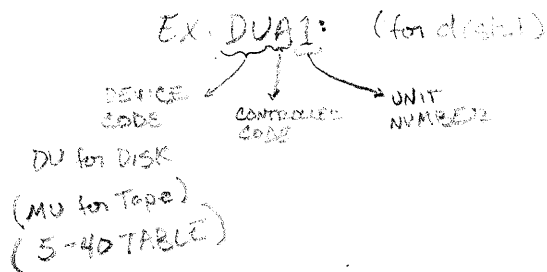 Ex. DUA1: (for disk!)
DEVICE CODE
CONTROLLER CODE
UNIT NUMBER
DU for DISK
(MU for Tape)
(5-40 TABLE)